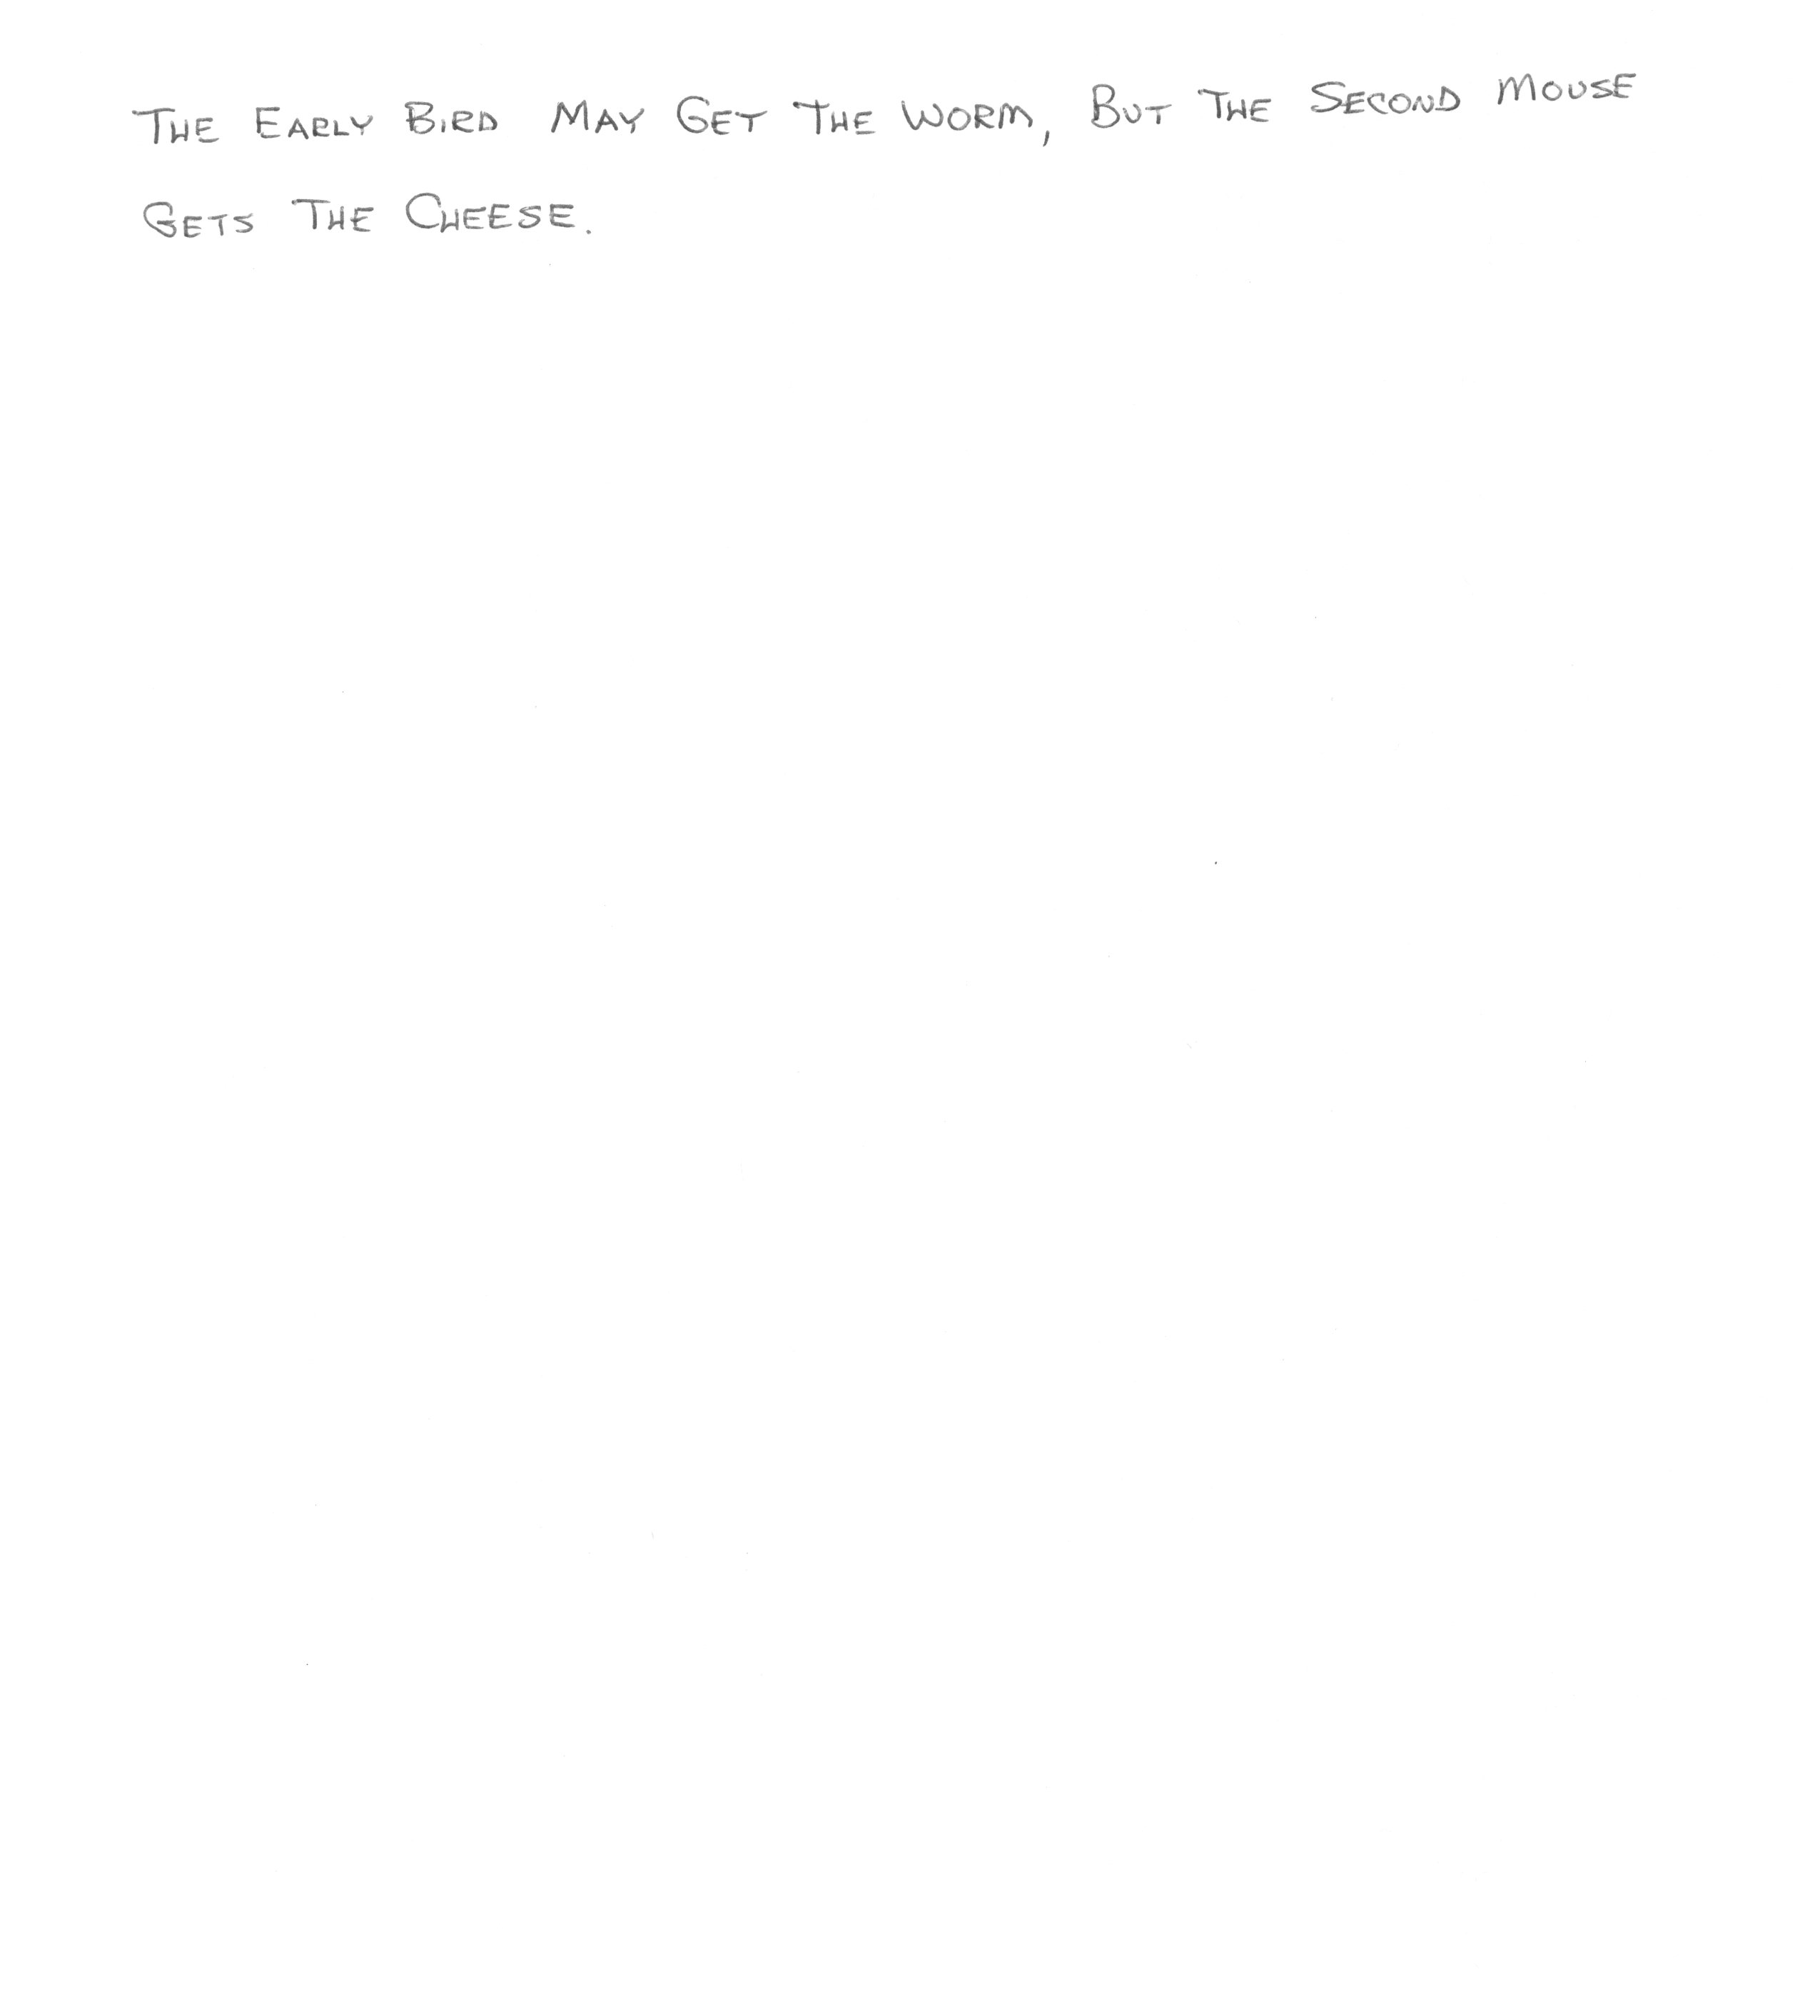 THE EARLY BIRD MAY GET THE WORM, BUT THE SECOND MOUSE
GETS THE CHEESE.